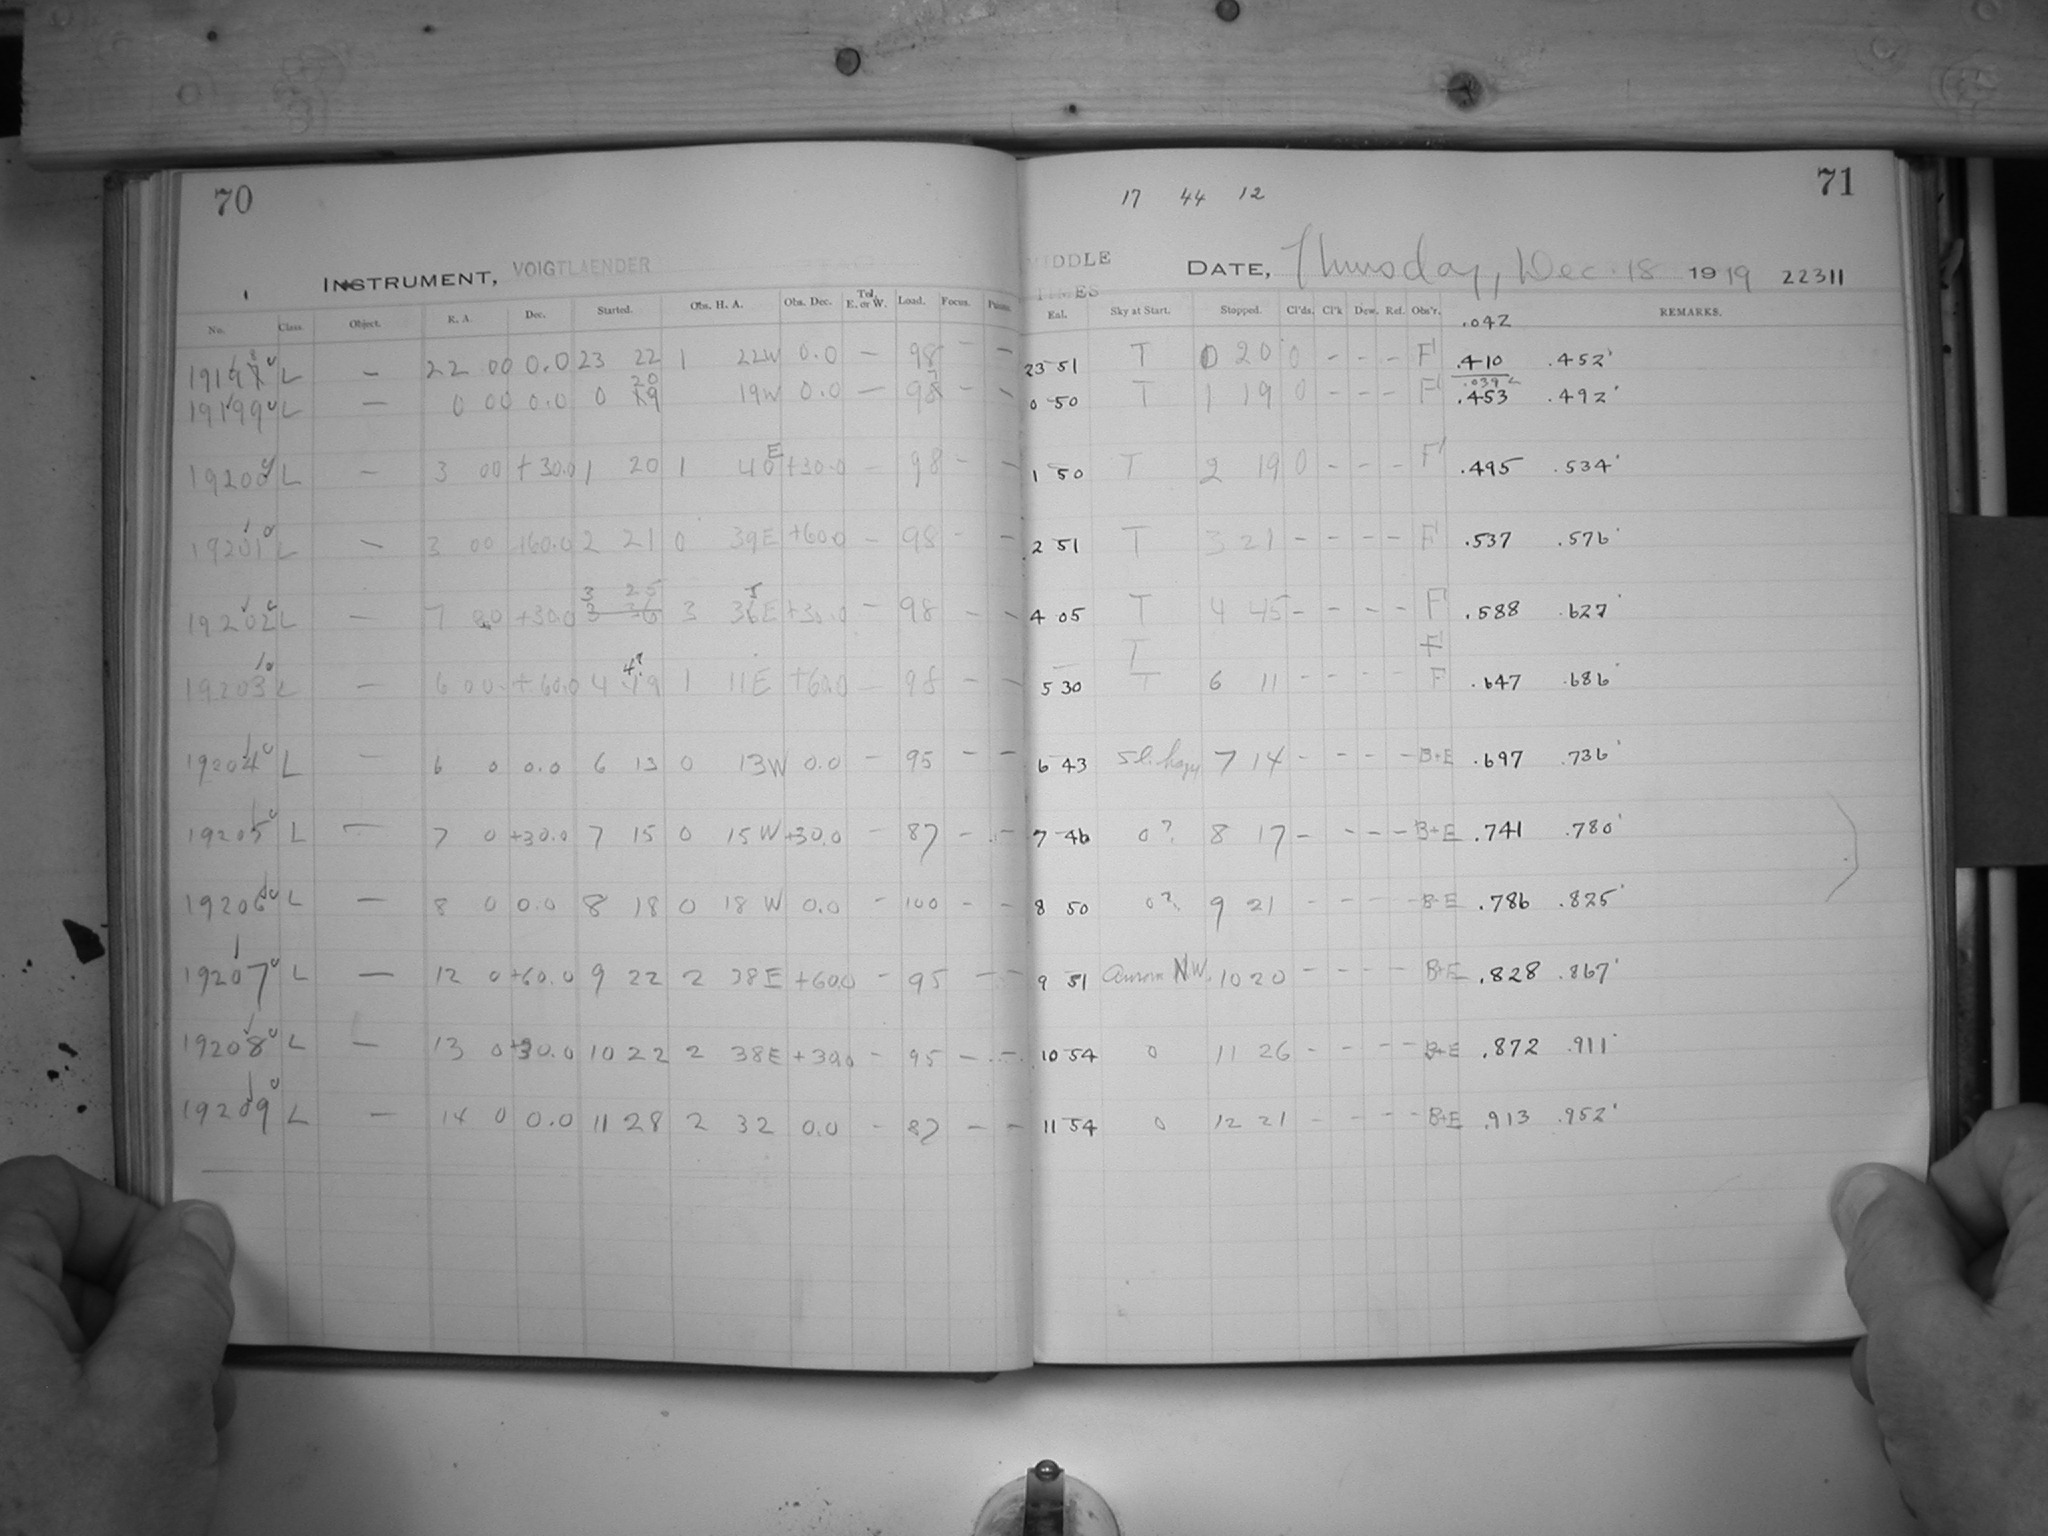 70
INSTRUMENT, VOIGTLAENDER
No. Class. Object. R. A. Dec. Started. Obs. H. A. Obs. Dec. Tel. E. or W. Load. Focus.
19198 L — 22 00 0.0 23 22 1 22W 0.0 — 98 — —
19199 L — 0 00 0.0 0 20 19W 0.0 — 98 — —
19200 L — 3 00 +30.0 1 20 1 40E +30.0 — 98 — —
19201 L — 3 00 +60.0 2 21 0 39E +60.0 — 98 — —
3 25
19202 L — 7 00 +30.0 3 36 3 35E +30.0 — 98 — —
19203 L — 6 00 +60.0 4 49 1 11E +60.0 — 98 — —
19204 L — 6 0 0.0 6 13 0 13W 0.0 — 95 — —
19205 L — 7 0 +30.0 7 15 0 15W +30.0 — 87 — —
19206 L — 8 0 0.0 8 18 0 18W 0.0 — 100 — —
19207 L — 12 0 +60.0 9 22 2 38E +60.0 — 95 — —
19208 L — 13 0 +30.0 10 22 2 38E +30.0 — 95 — —
19209 L — 14 0 0.0 11 28 2 32 0.0 — 87 — —
71
17 44 12
MIDDLE
TIMES
DATE, Thursday, Dec. 18 1919 22311
Eal. Sky at Start. Stopped. Cl'ds. Cl'k Dew. Ref. Obs'r. REMARKS.
.042
23 51 T 0 20 0 - - - F .410 .452
.039
0 50 T 1 19 0 - - - F .453 .492
1 50 T 2 19 0 - - - F .495 .534
2 51 T 3 21 - - - - F .537 .576
4 05 T 4 45 - - - - F .588 .627
T F
5 30 T 6 11 - - - - F .647 .686
6 43 Sl. hazy 7 14 - - - - B+E .697 .736
7 46 0? 8 17 - - - - B+E .741 .780
8 50 0? 9 21 - - - - B+E .786 .825
9 51 Aurora NW. 10 20 - - - - B+E .828 .867
10 54 0 11 26 - - - - B+E .872 .911
11 54 0 12 21 - - - - B+E .913 .952